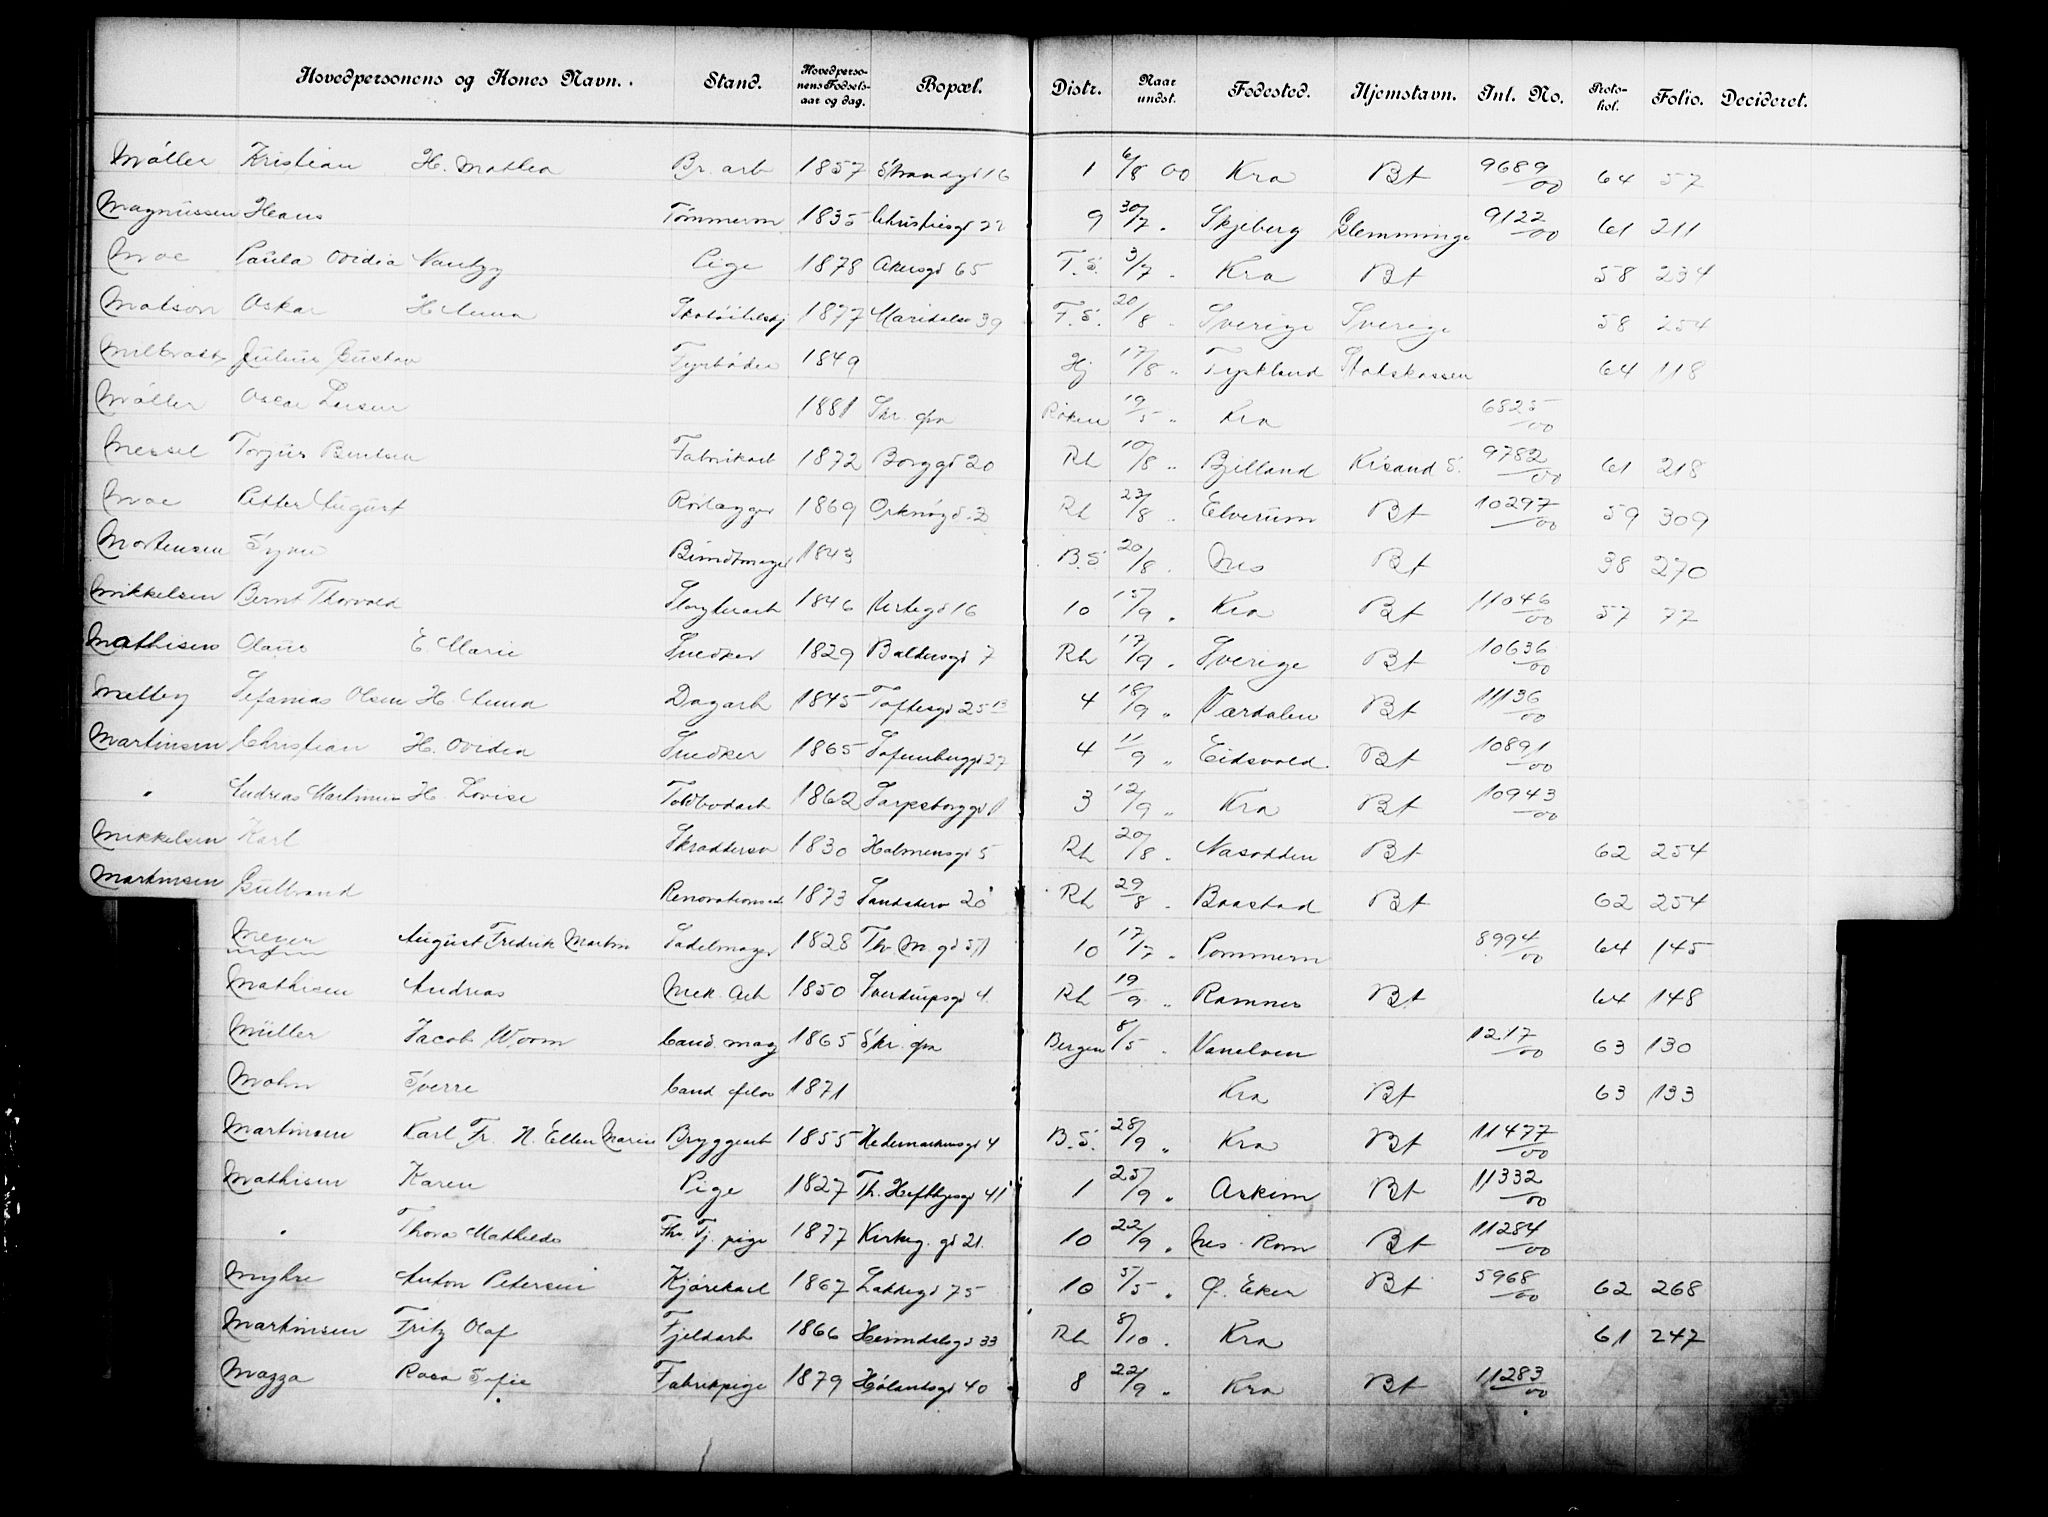 Hovedpersonens og Kones Navn. Stand. Hovedpersonens Fødselsaar og dag. Bopæl. Distr. Naar undst. Fødested. Hjemstavn. Inl. No. Protokol. Folio. Decideret.
Møller Kristian H. Mathea Br. arb 1857 Strandgd 16 1 6/8 00 Kra Bt 9689/00 64 57
Magnussen Hans Tømmerm 1835 Christiesgd 22 9 30/7 " Skjeberg Glemminge 9122/00 61 211
Moe Paula Ovidia Pige 1878 Akersgd 65 F.S. 3/7 " Kra Bt 58 234
Matson Oskar H Anna 1877 Maridalsv 39 F.S. 20/8 " Sverige Sverige 58 254
Julius Gustav Fyrbøder 1849 Hj 17/8 " Tyskland Statskassen 64 118
Møller Oscar Larsen 1881 Skr. fra Røken 19/5 " Kra 6825/00
Messel Torjus Bentsen Fabrikarb 1872 Borggd 20 Rh 10/8 " Bjelland Krsand S. 9782/00 61 218
Moe Petter August Rørlægger 1869 Orknøgd. 2 Rh 23/8 " Elverum Bt 10297/00 59 309
Mortensen Syver Bundtmager 1843 B.S 20/8 " Nes Bt 38 270
Mikkelsen Bernt Thorvald 1846 16 10 15/9 " Kra Bt 11046/00 57 77
Mathisen Olaus E. Marie Snedker 1829 Baldersgd 7 Rh 17/9 " Sverige Bt 10636/00
Melby Sefanias Olsen H. Anna Dagarb 1845 Toftesgd 25 13 4 18/9 " Værdalen Bt 11136/00
Martinsen Christian H. Ovidia Snedker 1865 Sofienberggd 27 4 11/9 " Eidsvold. Bt 10891/00
" Andreas Martinius H. Lovise Toldbodarb 1862 Sarpsborggd 1 3 12/9 " Kra Bt 10943/00
Mikkelsen Karl Skræddersv 1830 Holmensgd 5 Rh 20/8 " Næsodden Bt 62 254
Martinsen Gulbrand Renovationsarb 1873 Sandakerv 20 Rh 29/8 " Baastad Bt 62 254
Meyer August Fredrik Martin Sadelmager 1828 Th. M gd 10 17/7 " Pommern 8994/00 64 145
Mathisen Andreas Mek. Arb 1850 Sverdrupsgd 4. Rh 19/9 " Ramnes Bt 64 148
Müller Jacob Worm Cand. mag 1865 Skr. fra Bergen 8/5 " Vanelven 1217/00 63 130
Mohn Sverre Cand filos 1871 Kra Bt 63 133
Martinsen Karl Fr. H. Ellen Marie Bryggearb 1855 Hedemarkensgd 4 B.S. 28/9 " Kra Bt 11477/00
Mathisen Karen Pige 1827 Th. Heftyesgd 41 1 25/9 " Askim Bt 11332/00
" Thora Mathilde Fhv. Tj. pige 1877 Kirkeg. gd 21. 10 22/9 " Nes. Rom Bt 11284/00
Myhre Anton Petersen Kjørekarl 1867 Lakkegd 75 10 5/5 " Ø. Eker Bt 5968/00 62 268
Martinsen Fritz Olaf Fjeldarb 1866 Heimdalsgd 33 Rh 8/10 " Kra 61 247
Mazza Rosa Sofie Fabrikpige 1879 Hølandsgd 40 8 22/9 " Kra Bt 11283/00